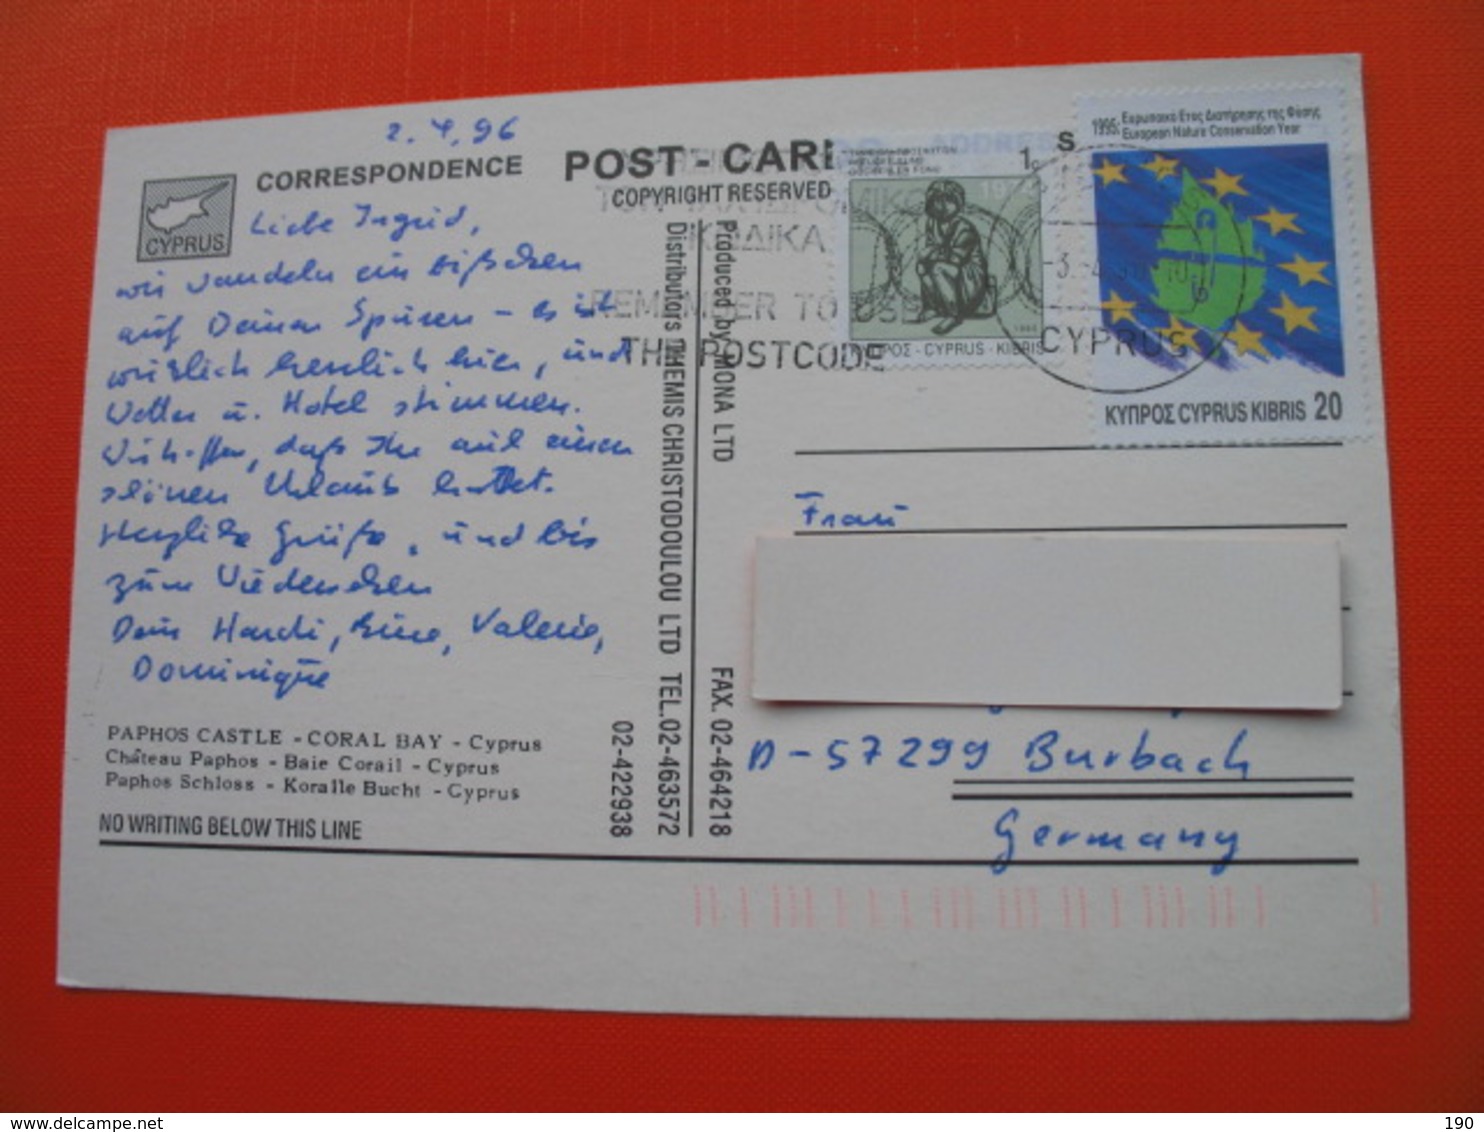 2.4.96
CORRESPONDENCE
POST - CAR
COPYRIGHT RESERVED
CYPRUS
Liebe Ingrid,
wir wandeln ein bißchen
auf Deinen Spuren - es ist
wirklich herrlich hier, und
Wetter u. Hotel stimmen.
Wir hoffen, daß Ihr auch einen
schönen Urlaub hattet.
Herzliche Grüße, und bis
zum Wiedersehen
Dein Hardi, Valerie,
Dominique
PAPHOS CASTLE - CORAL BAY - Cyprus
Château Paphos - Baie Corail - Cyprus
Paphos Schloss - Koralle Bucht - Cyprus
NO WRITING BELOW THIS LINE
Produced by MONA LTD
FAX. 02-464218
Distributors THEMIS CHRISTODOULOU LTD TEL.02-463572
02-422938
ΚΩΔΙΚΑ
REMEMBER TO USE
THE POSTCODE
1c
ΚΥΠΡΟΣ - CYPRUS - KIBRIS
CYPRUS
1995: Ευρωπαϊκό Έτος Διατήρησης της Φύσης
European Nature Conservation Year
ΚΥΠΡΟΣ CYPRUS KIBRIS 20
Frau
D-57299 Burbach
Germany
delcampe.net
190